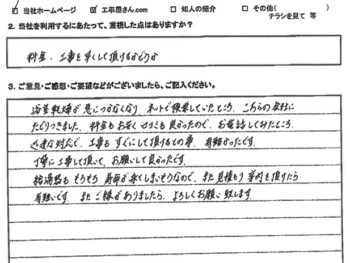 ☑ 当社ホームページ ☑ 工事屋さん.com □ 知人の紹介 □ その他( )
チラシを見て 等
2. 当社を利用するにあたって、重視した点はありますか?
料金・工事を早くして頂けるかどうか
3. ご意見・ご感想・ご要望などがございましたら、ご記入ください。
浴室乾燥が急につかなくなり ネットで検索していたところ、こちらの会社に
たどりつきました。料金もお安く口コミも良かったので、お電話してみたところ、
迅速な対応で、工事も すぐにして頂けるとの事、有難かったです。
丁寧に工事して頂いて、お願いして良かったです。
給湯器も そろそろ 寿命が来てしまいそうなので、また見積もり 案内を頂けたら
有難いです。また ご縁がありましたら、よろしくお願い致します。